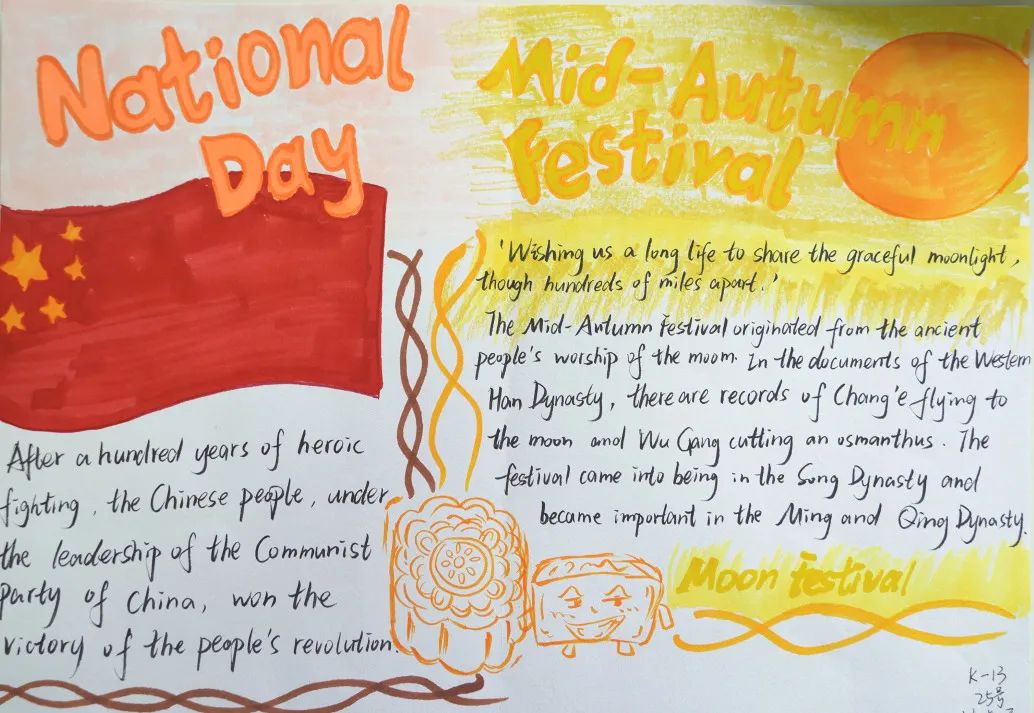 National
Day
After a hundred years of heroic
fighting, the Chinese people, under
the leadership of the Communist
Party of China, won the
victory of the people's revolution.
Mid-Autumn
Festival
'Wishing us a long life to share the graceful moonlight,
though hundreds of miles apart.'
The Mid-Autumn Festival originated from the ancient
people's worship of the moom. In the documents of the Western
Han Dynasty, there are records of Chang'e flying to
the moon and Wu Gang cutting an osmanthus. The
festival came into being in the Song Dynasty and
became important in the Ming and Qing Dynasty.
Moon festival
K-13
25号